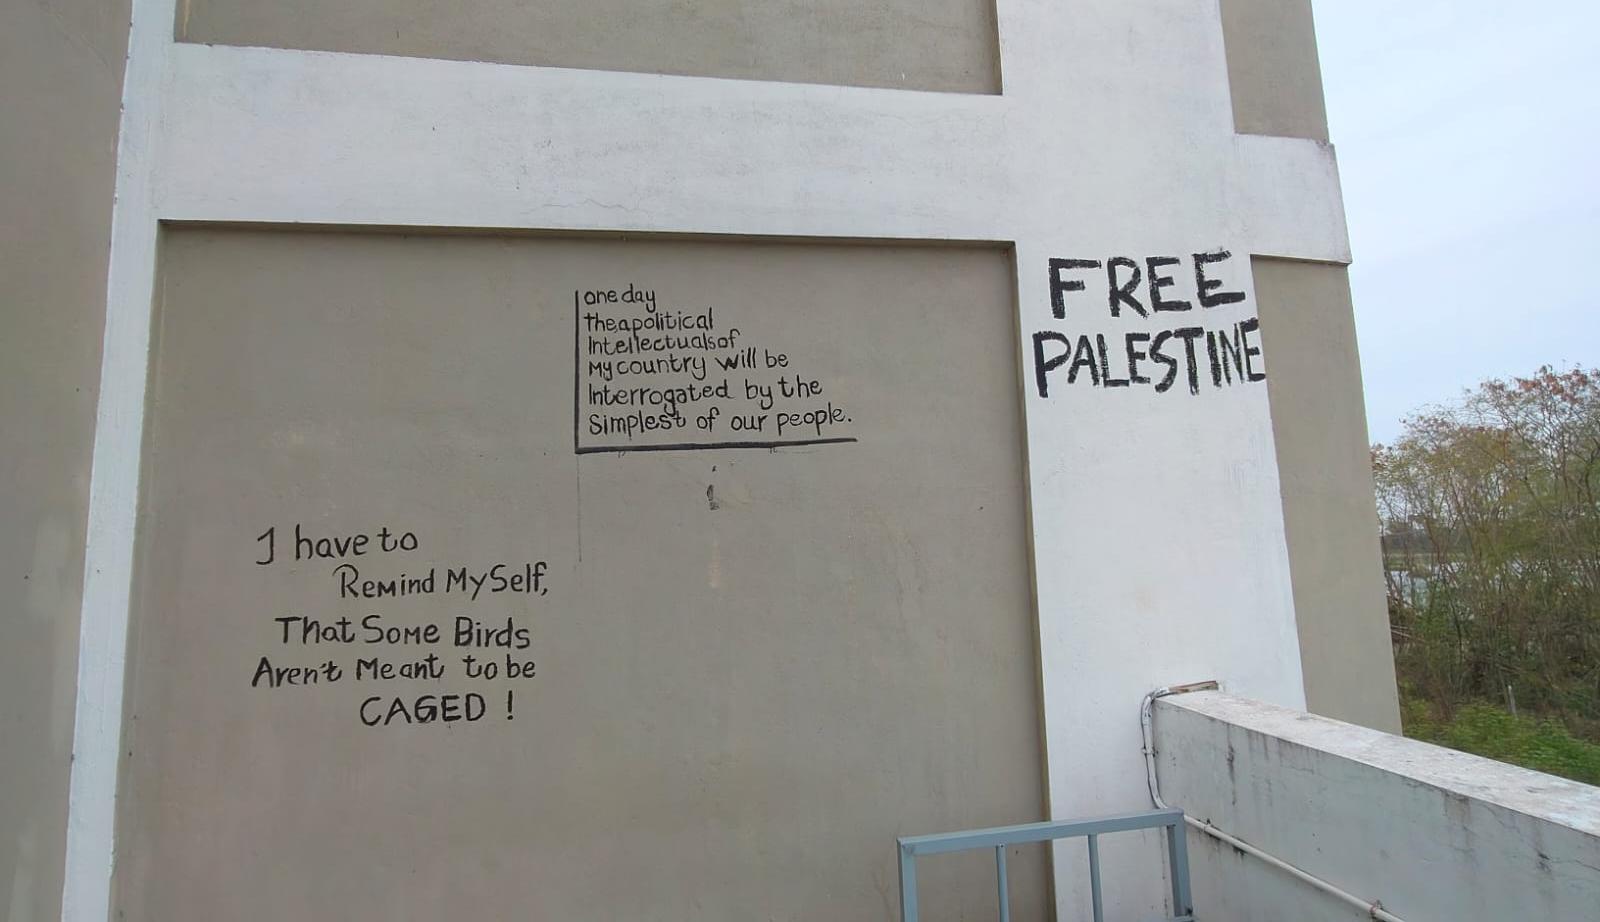 one day
the apolitical
Intellectuals of
My country will be
Interrogated by the
Simplest of our people.
I have to
Remind MySelf,
That Some Birds
Aren't Meant to be
CAGED !
FREE
PALESTINE